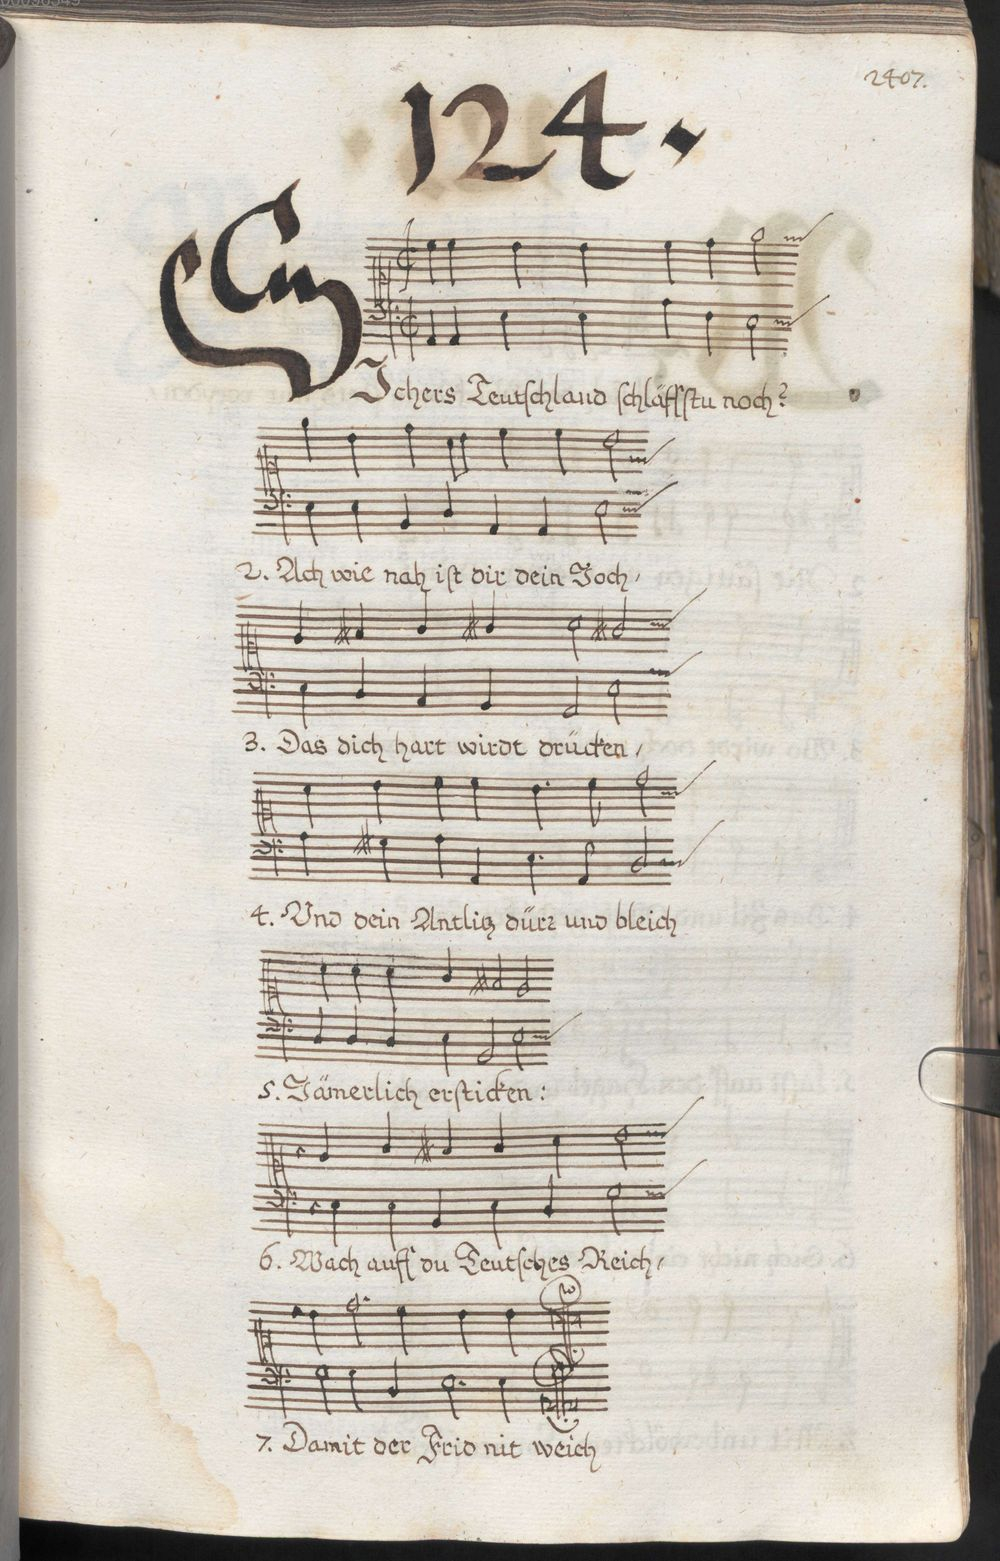 2407.
124.
SIchers Teutschland schläffstu noch?
2. Ach wie nah ist dir dein Joch,
3. Das dich hart wirdt drücken,
4. Vnd dein Antlitz dürr und bleich
5. Jämerlich ersticken:
6. Wach auff du Teutsches Reich,
7. Damit der Frid nit weich